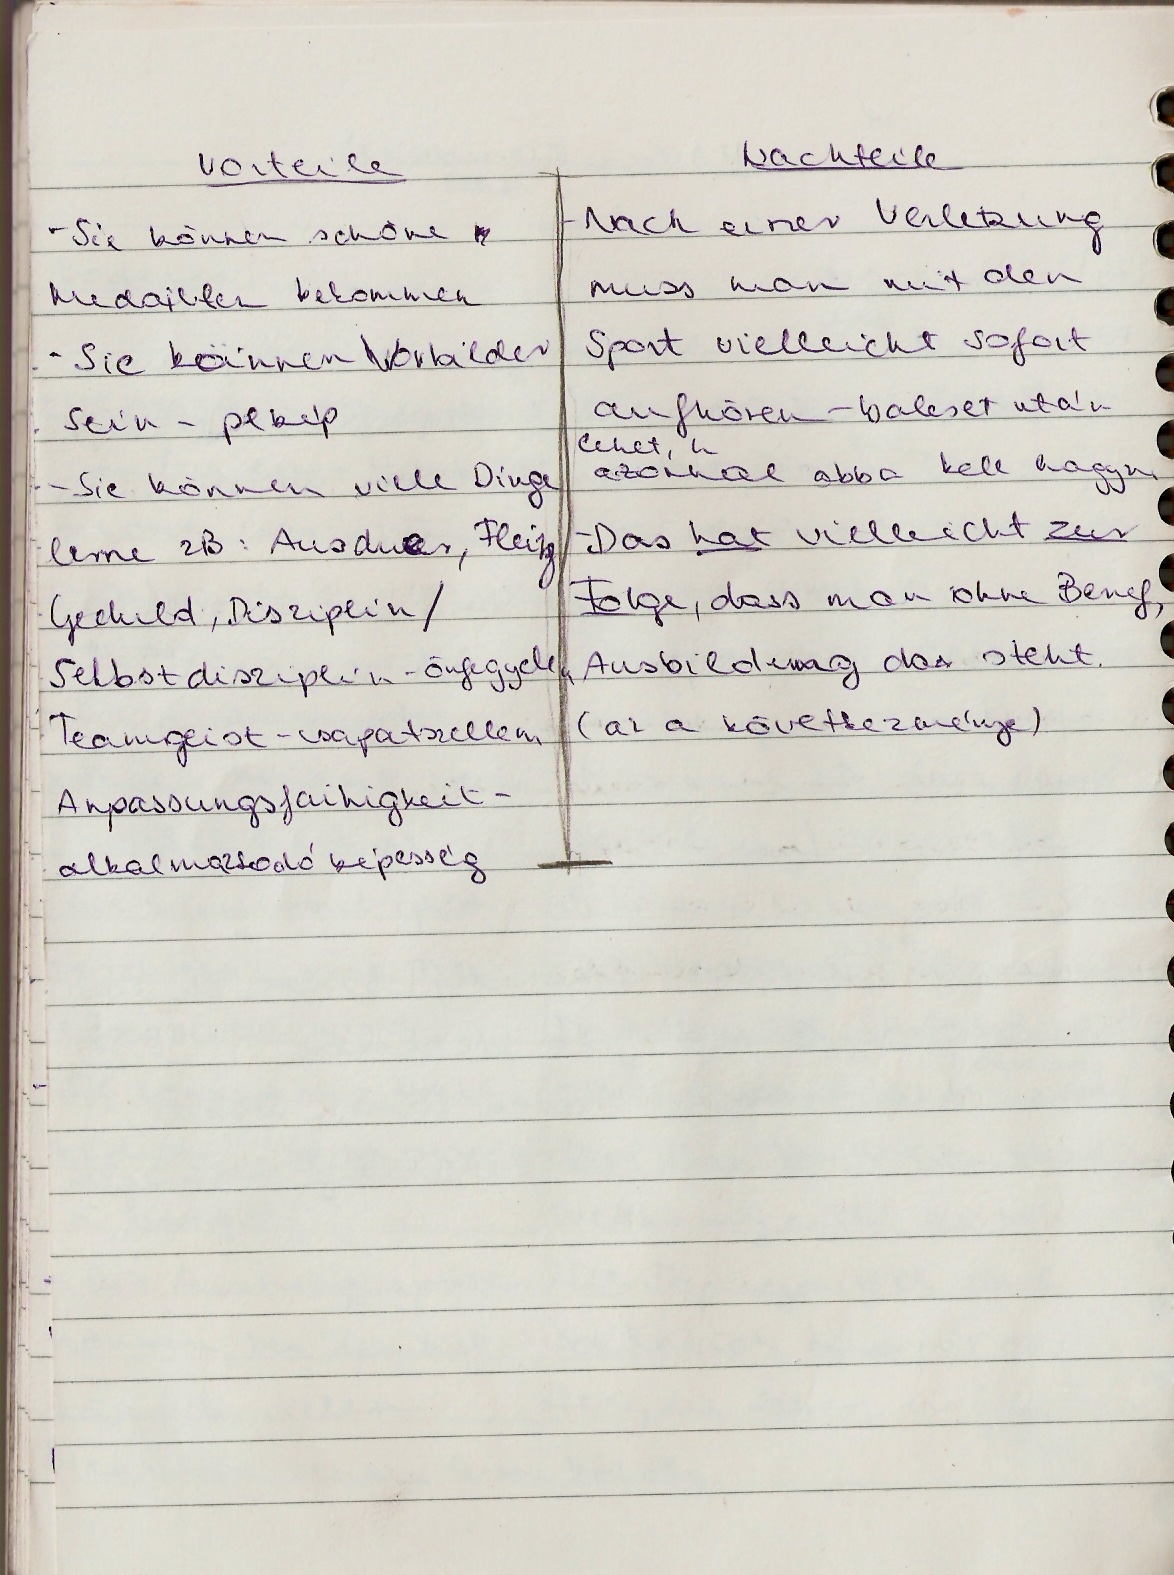 Vorteile
- Sie können schöne
Medaillen bekommen
- Sie können Vorbilder
sein - plkép
- Sie können viele Dinge
lerne zB: Ausdauer, Fleiß
Geduld, Disziplin/
Selbstdisziplin - önfegyelem
Teamgeist - csapatszellem
Anpassungsfähigkeit -
alkalmazkodó képesség
Nachteile
- Nach einer Verletzung
muss man mit den
Sport vielleicht sofort
aufhören - baleset után
lehet, h
azonnal abba kell hagyn
- Das hat vielleicht zur
Folge, dass man ohne Beruf,
Ausbildung das steht.
(az a következménye)